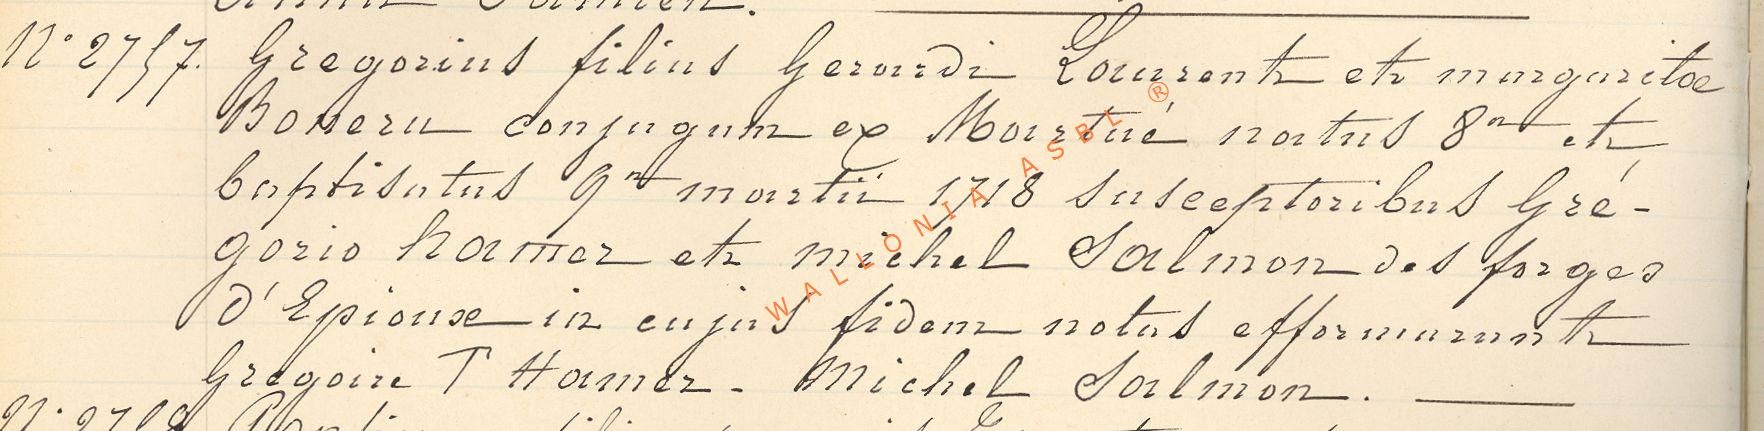 N° 2757. Gregorius filius Gerardi Laurent et margaritae
Bonera conjugum ex Martué natus 8ᵃ et
baptisatus 9ᵃ martii 1718 susceptoribus Gré-
gorio hamer et michel Salmon des forges
d'Epioux in cujus fidem notas efformarunt
Gregoire T Hamer - Michel Salmon.
WALLONIA ASBL ®